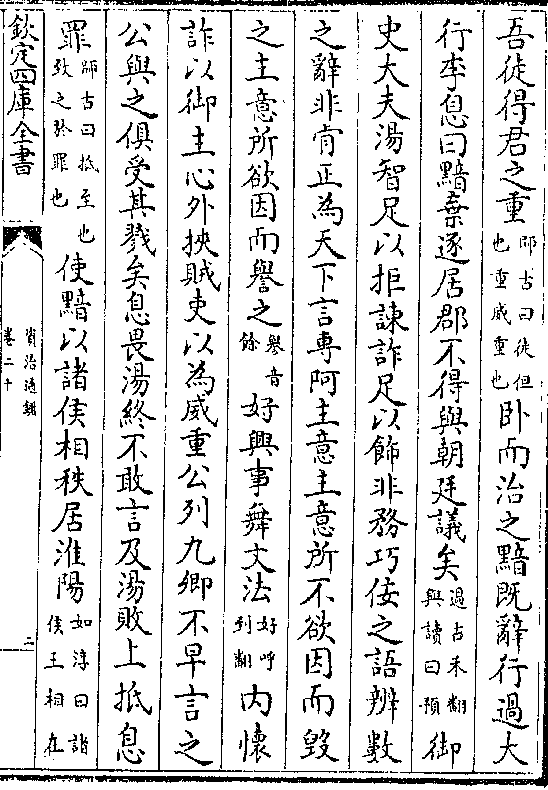 吾徒得君之重師古曰徒但也重威重也臥而治之黯既辭行過大
行李息曰黯棄逐居郡不得與朝廷議矣過古禾翻與讀曰預御
史大夫湯智足以拒諫詐足以飾非務巧佞之語辨數
之辭非肯正為天下言專阿主意主意所不欲因而毀
之主意所欲因而譽之譽音餘好興事舞文法好呼到翻內懷
詐以御主心外挾賊吏以為威重公列九卿不早言之
公與之俱受其戮矣息畏湯終不敢言及湯敗上抵息
罪師古曰抵至也致之於罪也使黯以諸侯相秩居淮陽如淳曰諸侯王相在
欽定四庫全書
資治通鑑
卷二十
二